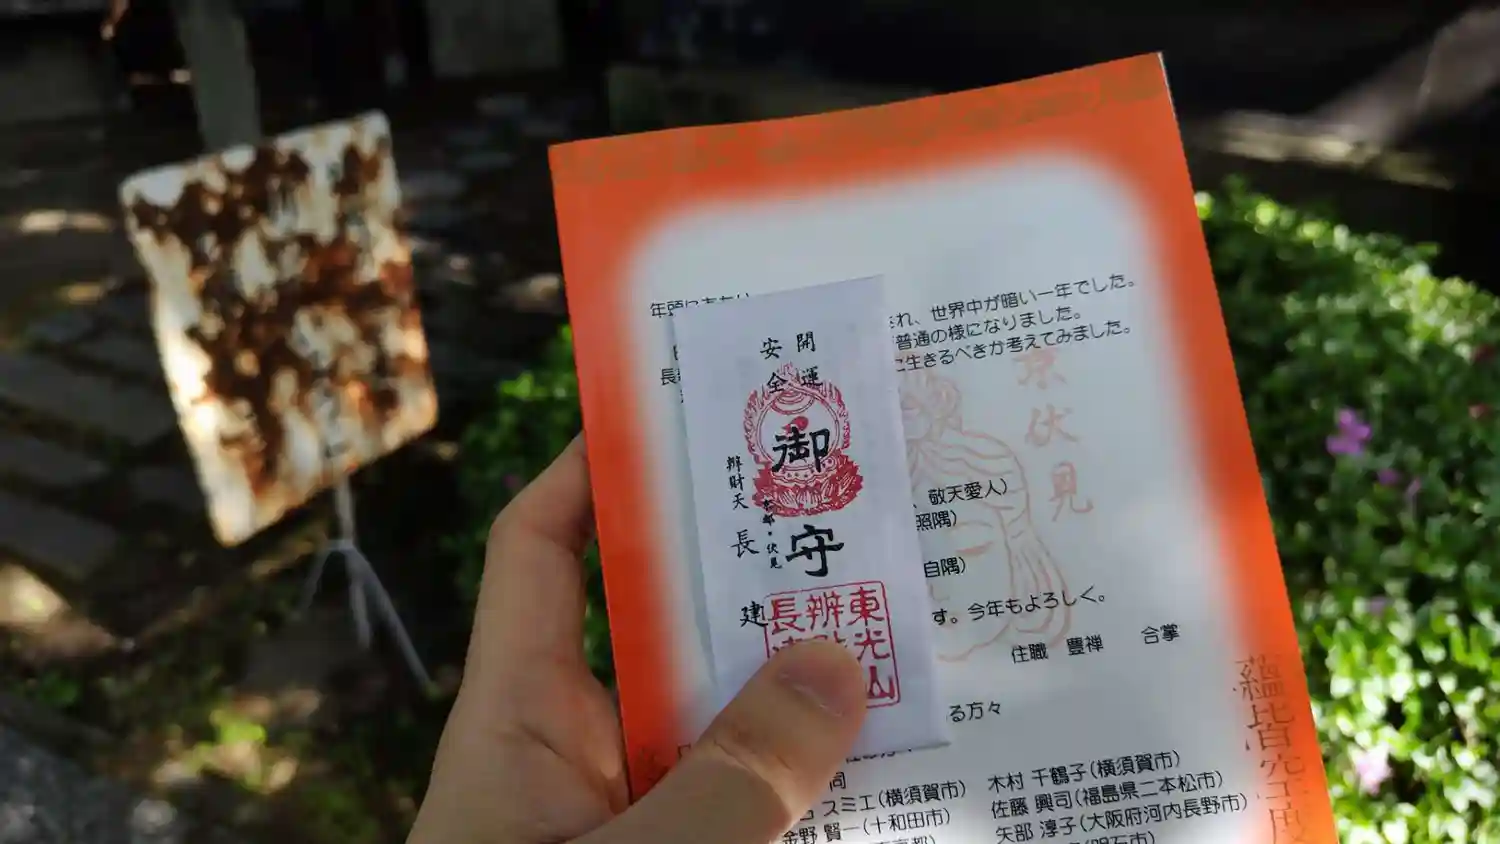 世界中が暗い一年でした。
普通の様になりました。
に生きるべきか考えてみました。
開運
安全
御守
辨財天
京都・伏見
長建
東光山
辨財
長建
京伏見
、敬天愛人)
照隅)
自隅)
す。今年もよろしく。
住職 豊禅 合掌
る方々
同
スミエ(横須賀市) 木村 千鶴子(横須賀市)
金野 賢一(十和田市) 佐藤 興司(福島県二本松市)
矢部 淳子(大阪府河内長野市)
(明石市)
蘊皆空度